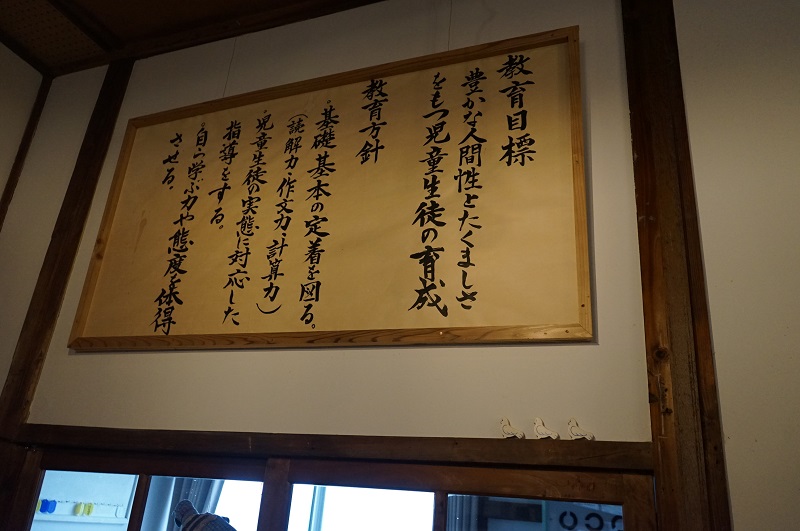 教育目標
豊かな人間性とたくましさ
をもつ児童生徒の育成
教育方針
。基礎基本の定着を図る。
(読解力・作文力・計算力)
。児童生徒の実態に対応した
指導をする。
。自ら学ぶ力や態度を体得
させる。